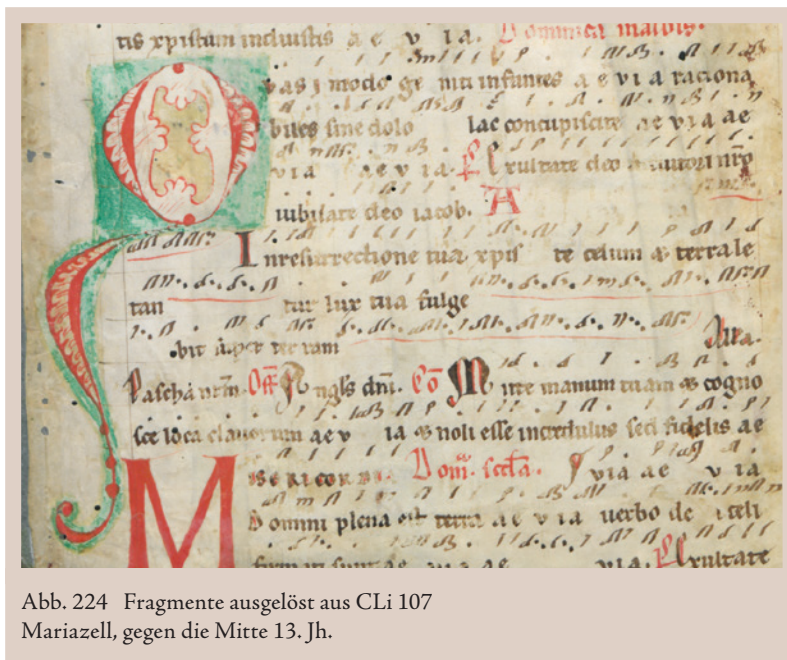 tis xpistum induistis a e v ia. Dominica in albis.
Quasi modo ge niti infantes a e v i a raciona
biles sine dolo lac concupiscite ae v i a ae
v i a ae v i a. Ps Exultate deo adiutori nro
iubilate deo iacob. A
In resurrectione tua xpist te celum & terra le
tan tur lux tua fulge
bit super terram Alla.
Pascha nrm. Off Angls dni. Co Mitte manum tuam & cogno
sce loca clavorum ae v ia & noli esse incredulus sed fidelis ae
Misericordia Dom. scda. v ia ae v ia
Domini plena est terra a e v i a verbo dei celi
firmi sunt ae via. Ps Exultate
Abb. 224 Fragmente ausgelöst aus CLi 107
Mariazell, gegen die Mitte 13. Jh.